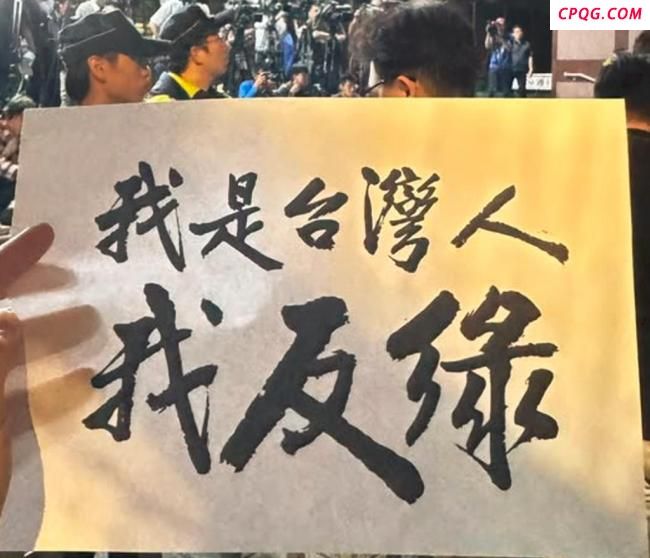 CPQG.COM
我是台灣人
我反綠